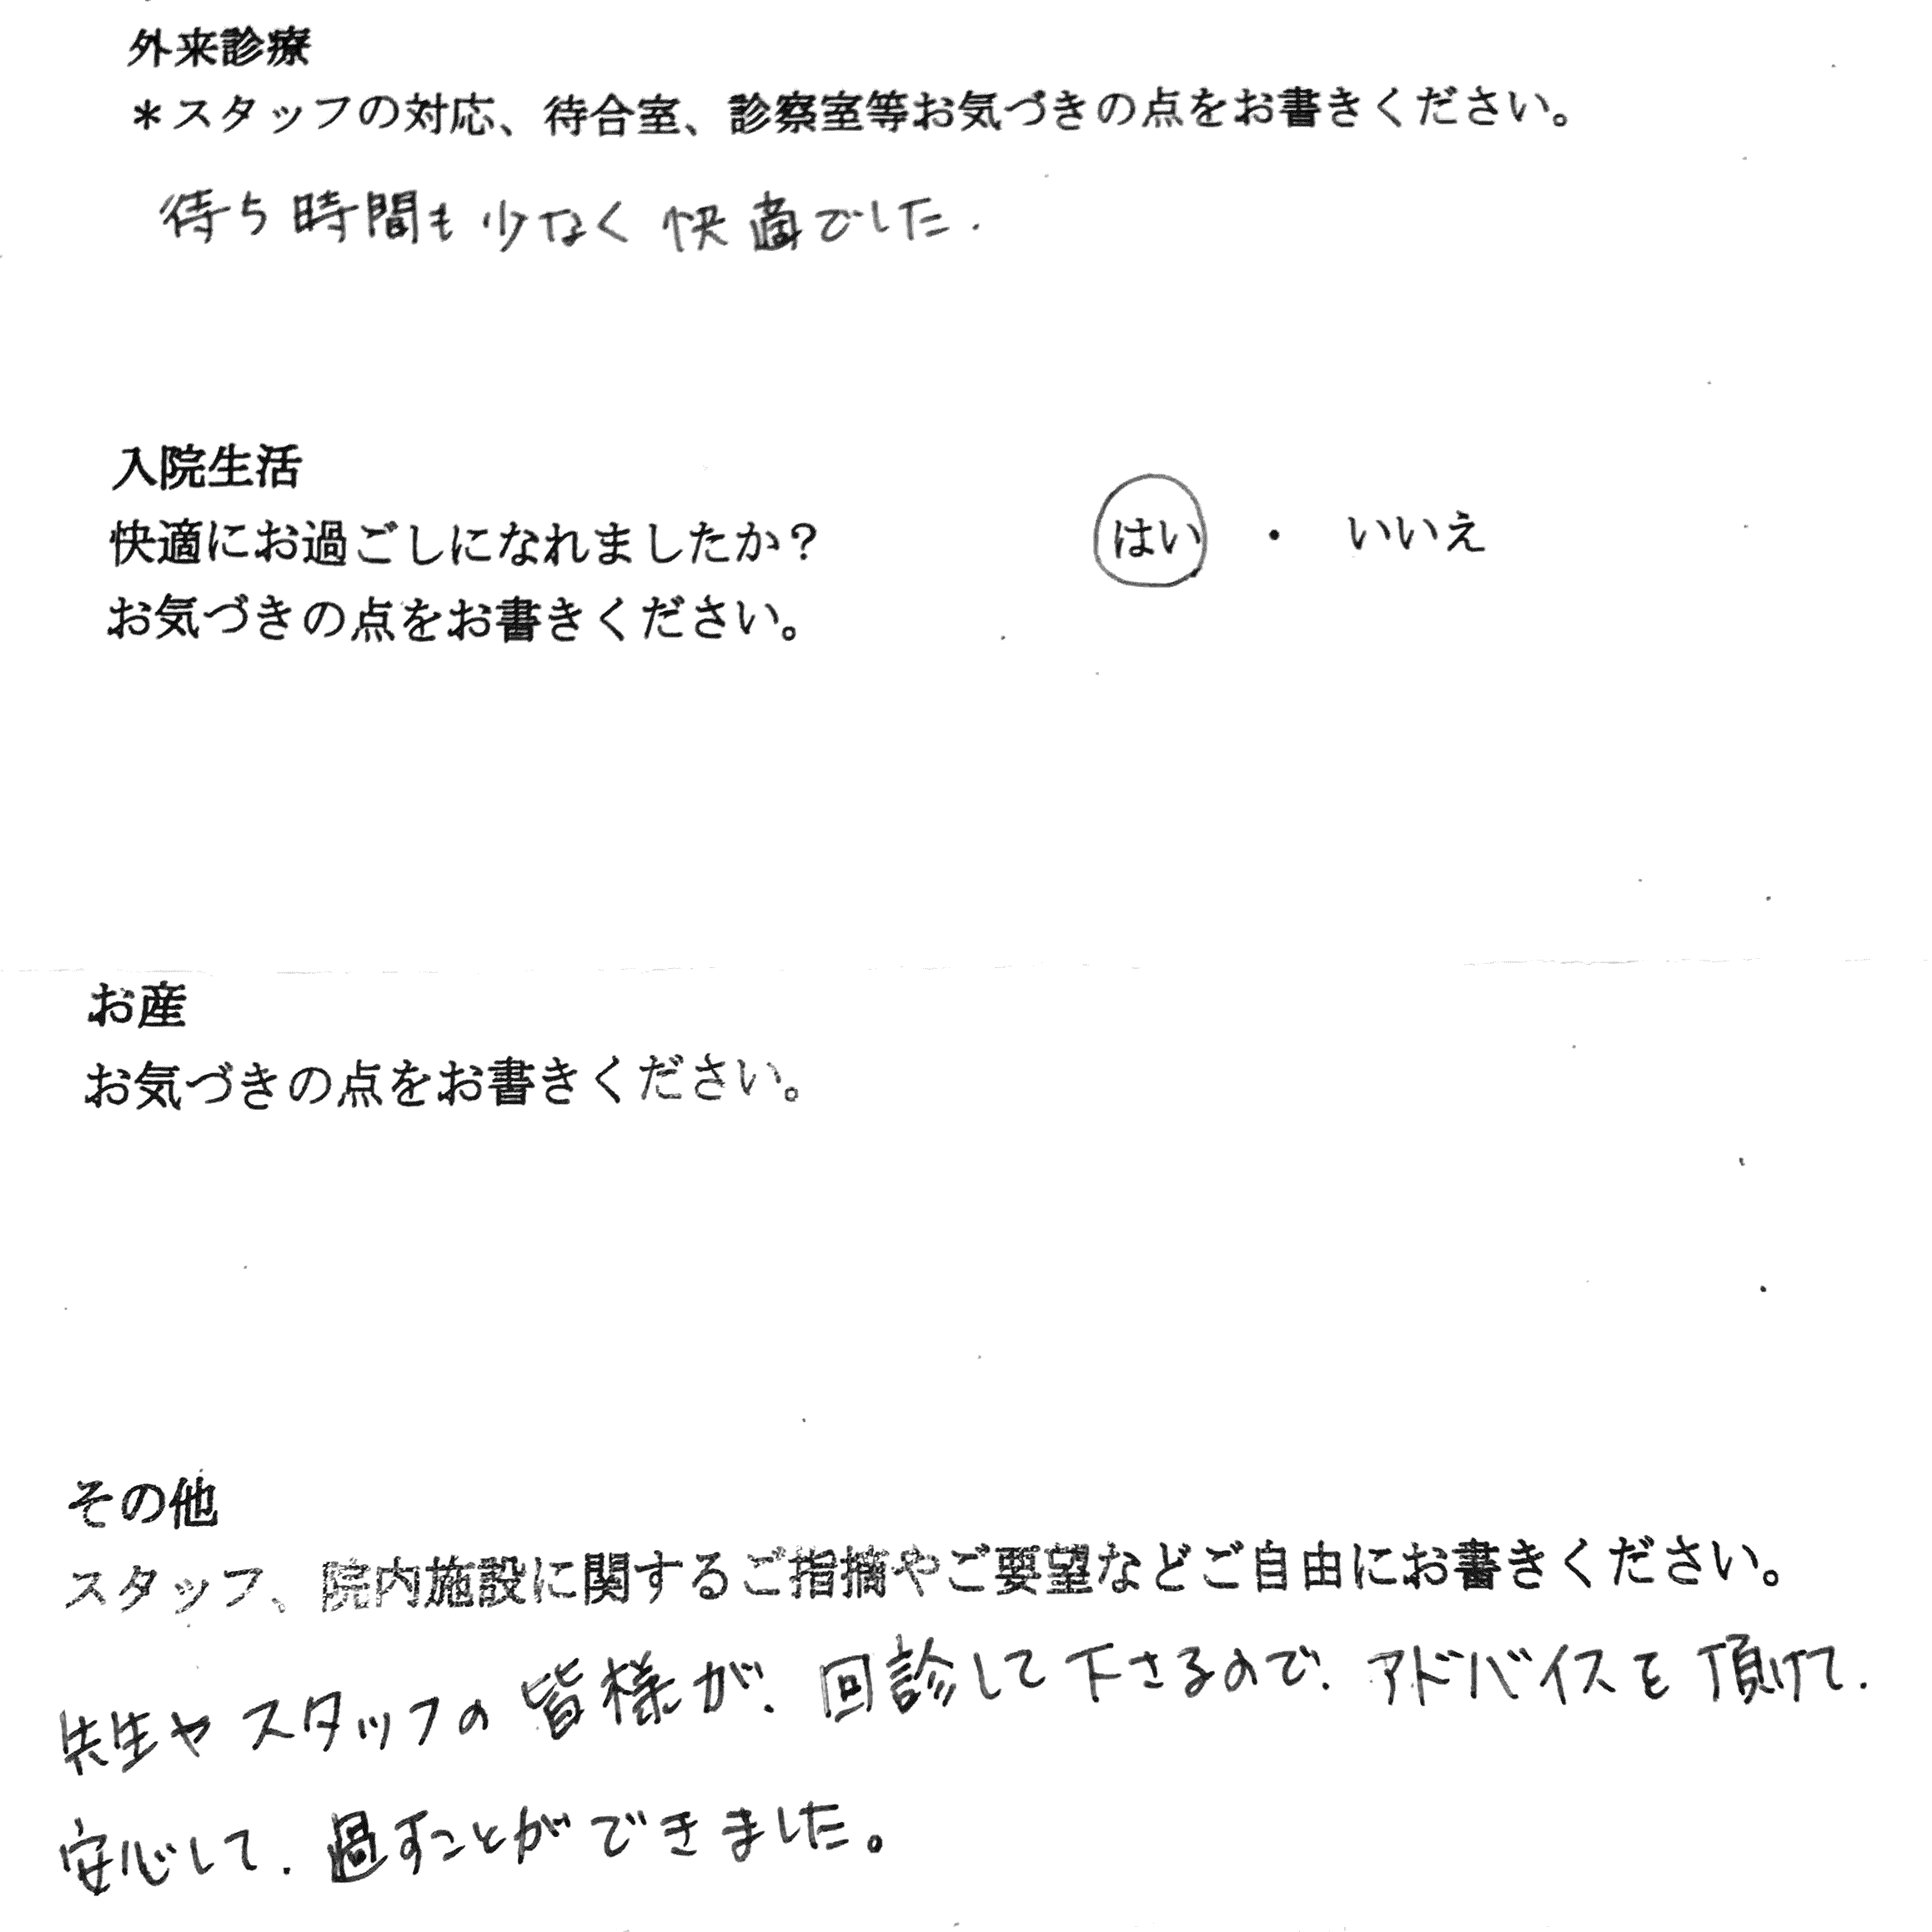 外来診療
＊スタッフの対応、待合室、診察室等お気づきの点をお書きください。
待ち時間も少なく快適でした.
入院生活
快適にお過ごしになれましたか？ はい ・ いいえ
お気づきの点をお書きください。
お産
お気づきの点をお書きください。
その他
スタッフ、院内施設に関するご指摘やご要望などご自由にお書きください。
先生やスタッフの皆様が、回診して下さるので、アドバイスを頂けて、
安心して、過すことができました。